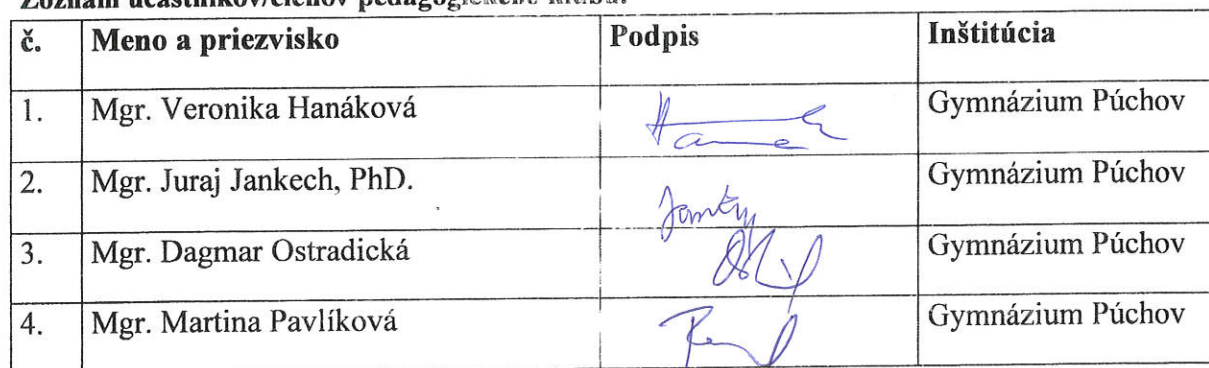 Zoznam účastníkov/členov pedagogického klubu:
č. Meno a priezvisko Podpis Inštitúcia
1. Mgr. Veronika Hanáková Gymnázium Púchov
2. Mgr. Juraj Jankech, PhD. Gymnázium Púchov
3. Mgr. Dagmar Ostradická Gymnázium Púchov
4. Mgr. Martina Pavlíková Gymnázium Púchov